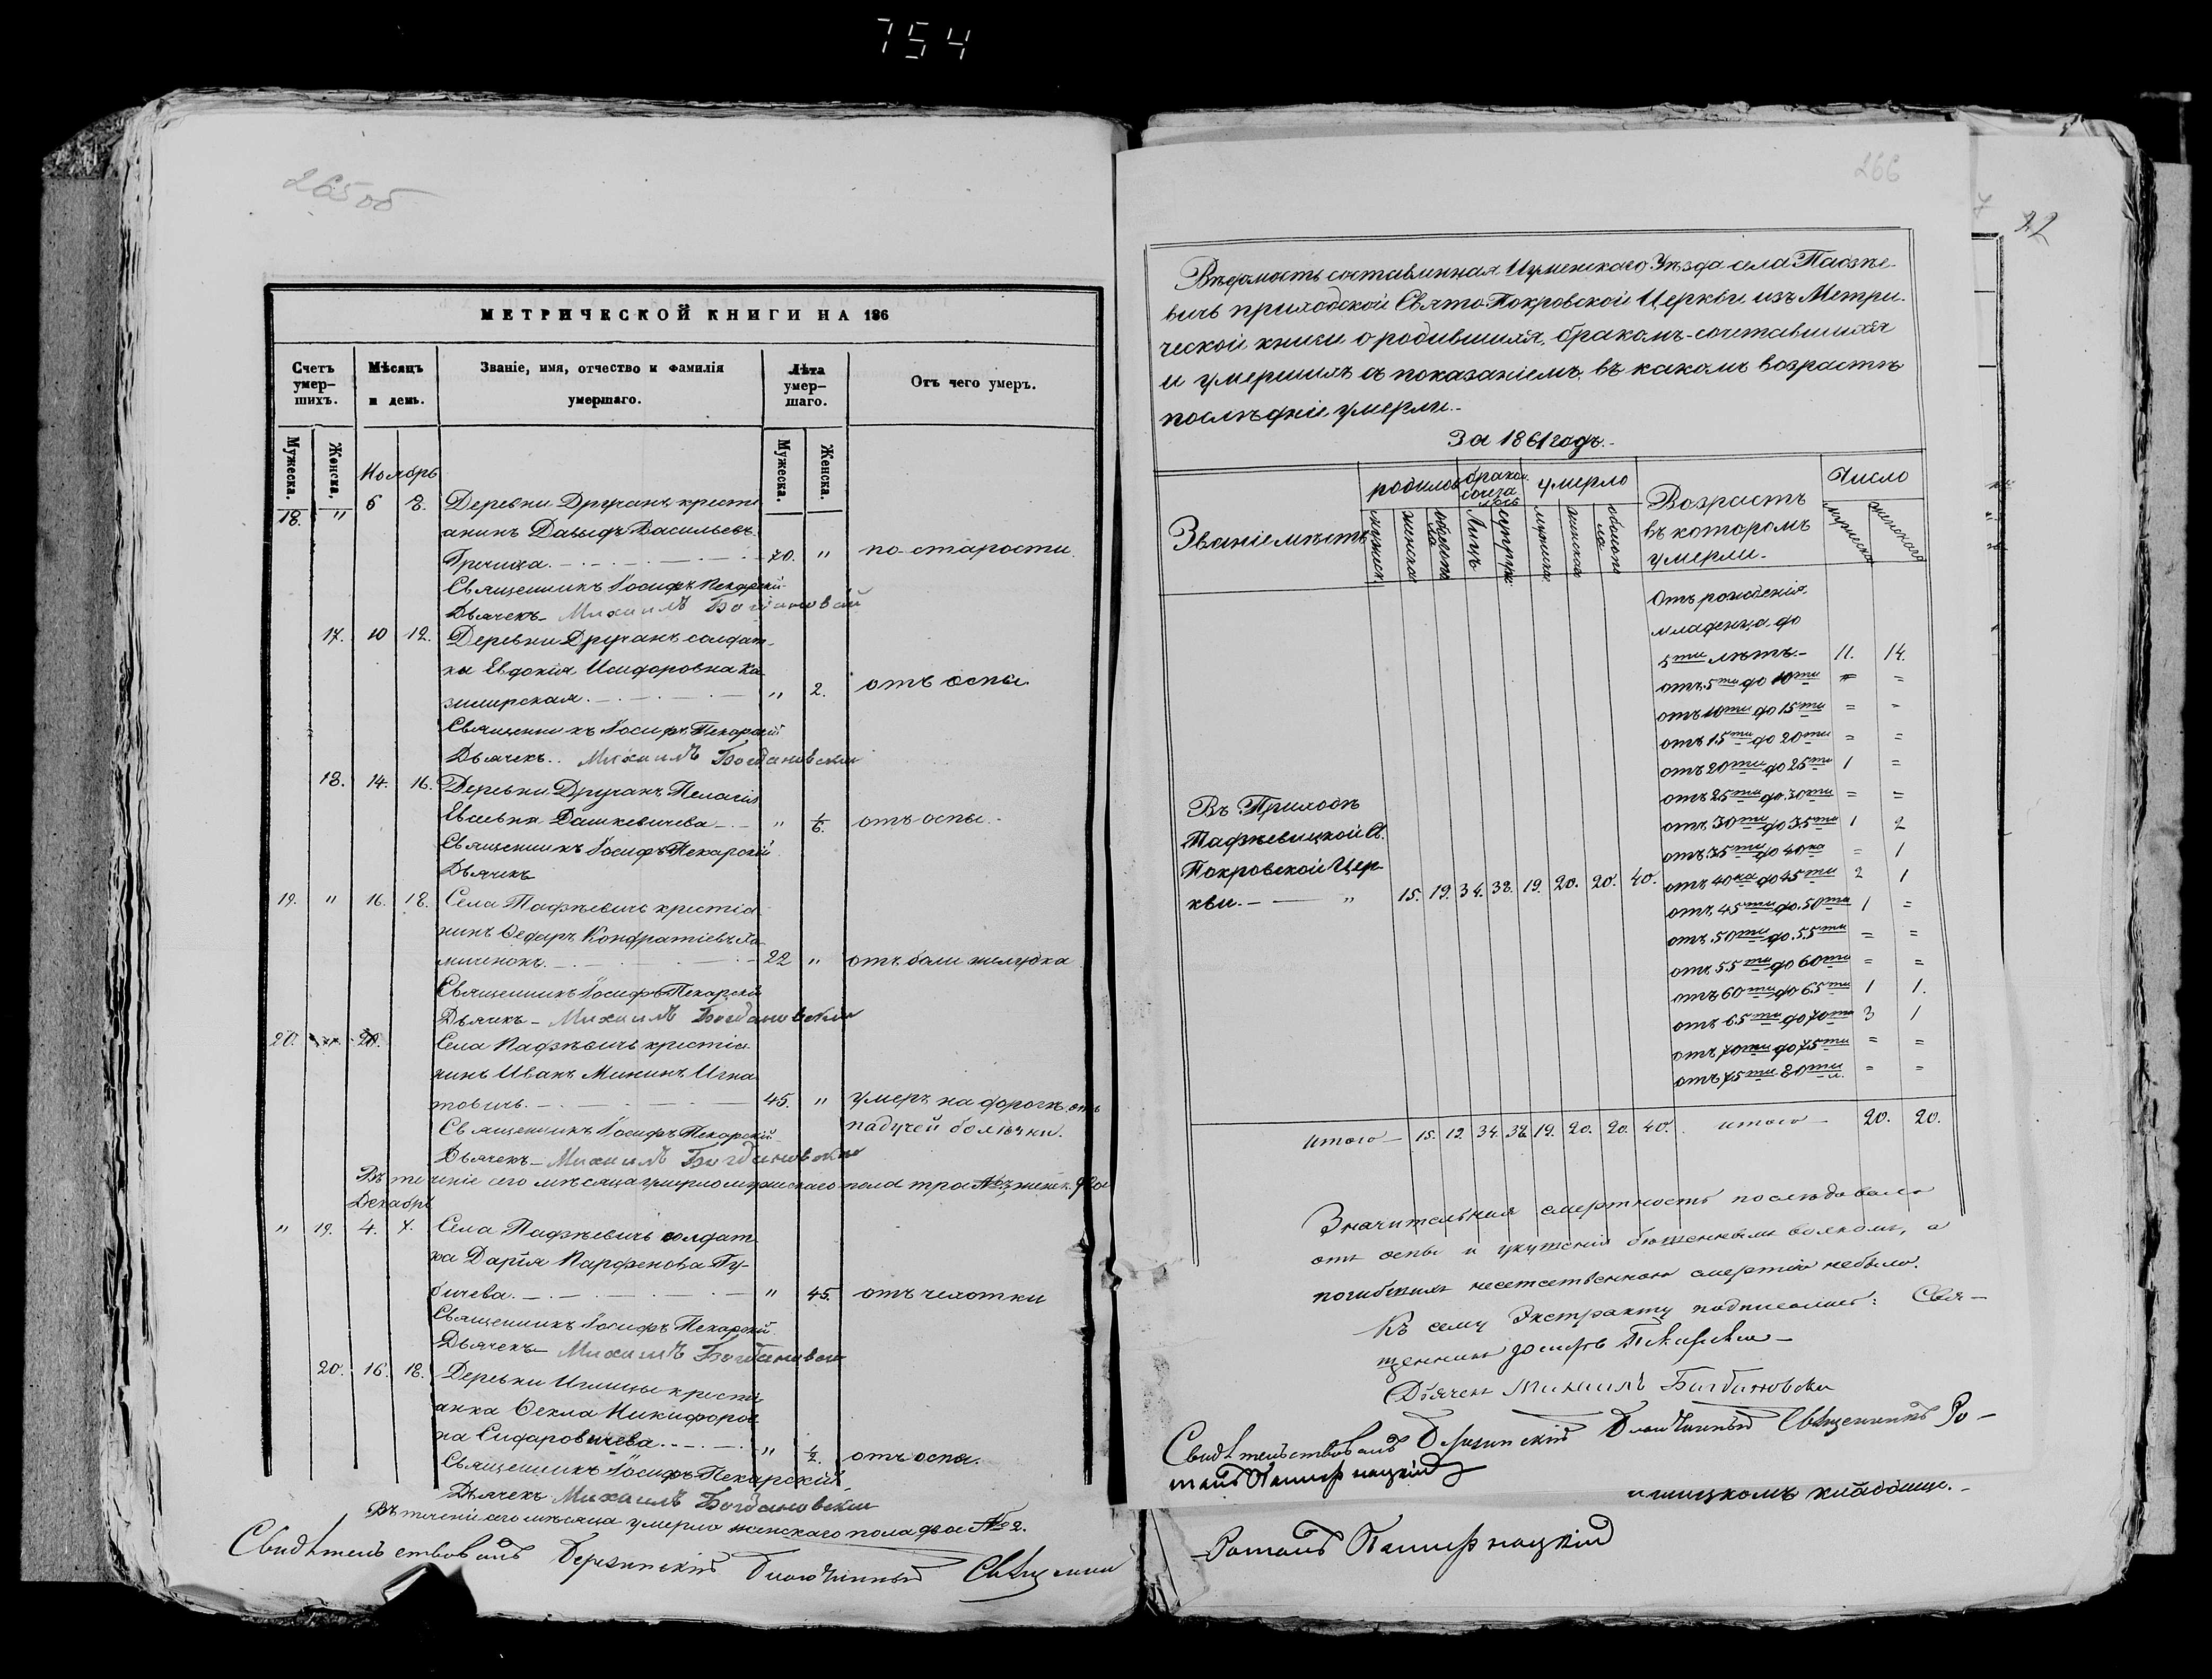 754
265 об
МЕТРИЧЕСКОЙ КНИГИ НА 186
Счетъ умер-
шихъ.
Мѣсяцъ
и день.
Званіе, имя, отчество и фамилія
умершаго.
Лѣта
умер-
шаго.
Отъ чего умеръ.
Мужеска.
Женска.
Мужеска.
Женска.
Ноябрь
18. " 6 8. Деревни Дручанъ кресть
анинъ Давыдъ Васильевъ
Гречиха. 70. " по старости.
Священникъ Іосифъ Пекарскій
Дьячекъ Михаилъ Богдановскій
17. 10 12. Деревни Дручанъ солдат-
ка Евдокія Исидоровна Ка
зимирская. " 2. отъ оспы.
Священникъ Іосифъ Пекарскій
Дьячекъ.. Михаилъ Богдановскій
18. 14. 16. Деревни Дручанъ Пелагія
Дашкевичева " отъ оспы.
Священникъ Іосифъ Пекарскій
Дьячекъ
19. " 16. 18. Села Пафзевичъ крестіа
нинъ Ѳедоръ Кондратіевъ
22 " отъ боли желудка
Священникъ Іосифъ Пекарскій
Дьячекъ Михаилъ Богдановскій
20. 20. Села Пафзевичъ крестіа
нинъ Иванъ Мининъ Игна
товичъ. 45. " умеръ на дорогѣ отъ
падучей болѣзни.
Священникъ Іосифъ Пекарскій
Дьячекъ Михаилъ Богдановскій
Въ теченіе сего мѣсяца умерло мужескаго пола три женск. два
Декабрь
" 19. 4. 7. Села Пафзевичъ солдат
ка Дарія Парфенова Гу-
бичева. " 45. отъ чехотки
Священникъ Іосифъ Пекарскій
Дьячекъ Михаилъ Богдановскій
20. 16. 18. Деревни Иглицы кресть
анка Ѳекла Никифоров
на Сидаровичева " ½. отъ оспы.
Священникъ Іосифъ Пекарскій
Дьячекъ Михаилъ Богдановскій
Въ теченіи сего мѣсяца умерло женскаго пола два № 2.
Свидѣтельствовалъ Березинскій Благочинный Священникъ
266
22
Вѣдомость составленная Игуменскаго Уѣзда села Пафзѣ-
вичъ приходской Свято-Покровской Церкви изъ Метри-
ческой книги о родившихся, бракомъ-сочетавшихся
и умершихъ съ показаніемъ въ какомъ возрастѣ
послѣдніе умерли.
За 1861 годъ.
Званіе мѣстъ
родилось
умерло
Возрастъ
въ которомъ
умерли.
Число
мужеска
женска
женскаго
Отъ рожденія
младенца до
5ти лѣтъ. 11. 14.
отъ 5ти до 10ти = =
отъ 10ти до 15ти = =
отъ 15ти до 20ти = =
отъ 20ти до 25ти 1 =
отъ 25ти до 30ти = =
отъ 30ти до 35ти 1 2
отъ 35ти до 40ка = 1
отъ 40ка до 45ти 2 1
отъ 45ти до 50ти 1 =
отъ 50ти до 55ти = =
отъ 55ти до 60ти = =
отъ 60ти до 65ти 1 1.
отъ 65ти до 70ти 3 1
отъ 70ти до 75ти = =
отъ 75ти 80ти л. = =
Въ Приходѣ
Пафзевицкой С.
Покровской Цер-
кви. " 15. 19. 34. 38. 19. 20. 20. 40.
Итого 15. 19. 34. 38. 19. 20. 20. 40. итого 20. 20.
Значительная смертность послѣдовала
отъ оспы и укушенія бѣшеннымъ волкомъ, а
погибшихъ неестественною смертію небыло.
Къ сему Экстракту подписались: Свя-
щенникъ Іосифъ Пекарскій
Дьячекъ Михаилъ Богдановскій
Свидѣтельствовалъ Березинскій Благочинный Священникъ Ро-
манъ
кладбище.
Романъ